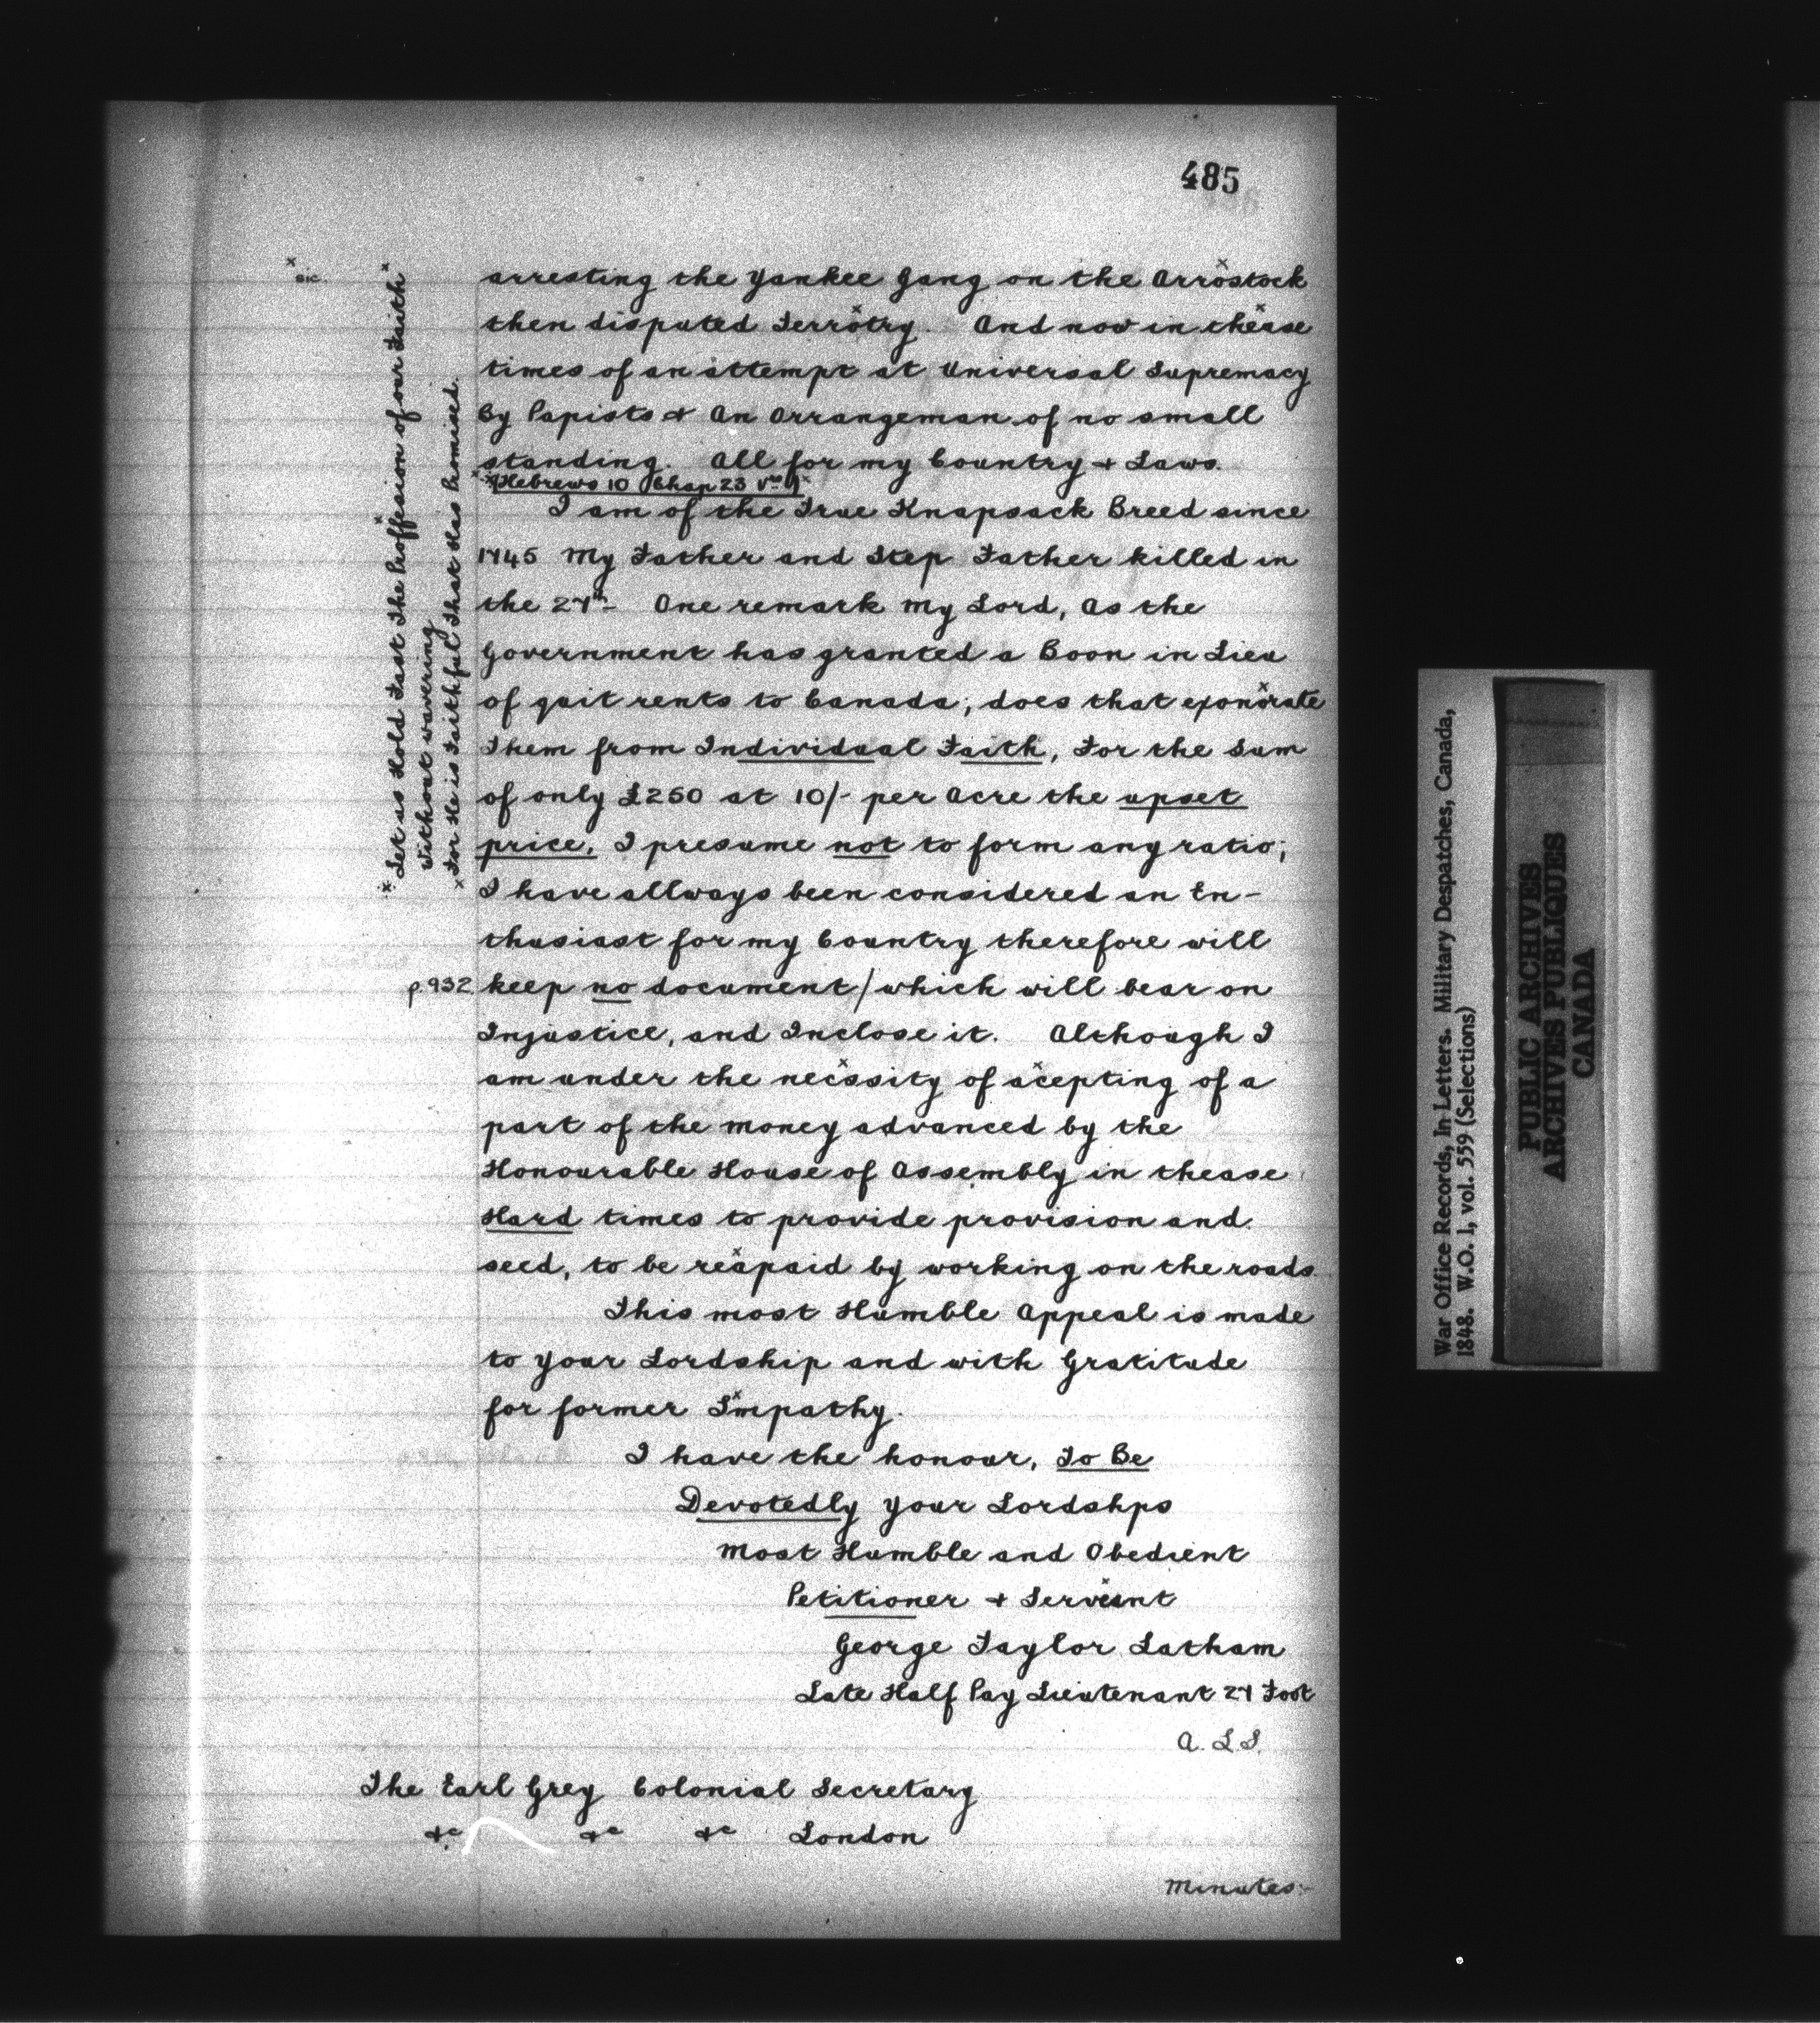 485
x sic.
arresting the Yankee Gang on the Arrostock
then disputed Terrotry. And now in thease
times of an attempt at Universal Supremacy
By Papists & An Orrangeman of no small
standing. All for my Country & Laws.
Hebrews 10 Chap 23 Vrs
I am of the True Knapsack Breed since
1745 My Father and Step Father killed in
the 27th One remark My Lord, As the
Government has granted a Boon in Lieu
of quit rents to Canada; does that exonorate
Them from Individual Faith, For the Sum
of only £250 at 10/- per Acre the upset
price. I presume not to form any ratio;
I have allways been considered an En-
thusiast for my Country therefore will
p.932 keep no document/which will bear on
Injustice, and Inclose it. Although I
am under the necssity of acepting of a
part of the Money advanced by the
Honourable House of Assembly in thease
Hard times to provide provision and
seed, to be reapaid by working on the roads
This most Humble Appeal is made
to Your Lordship and with Gratitude
for former Smpathy.
I have the honour, To Be
Devotedly Your Lordshps
Most Humble and Obedient
Petitioner & Servent
George Taylor Latham
Late Half Pay Lieutenant 27 Foot
A. L. S.
The Earl Grey Colonial Secretary
&c &c &c London
Minutes:-
x Let us Hold Fast The Proffesion of our Faith x
Without wavering
x For He is Faithful That Has Promised.
War Office Records, In-Letters. Military Despatches, Canada,
1848. W.O. 1, vol. 559 (Selections)
PUBLIC ARCHIVES
ARCHIVES PUBLIQUES
CANADA